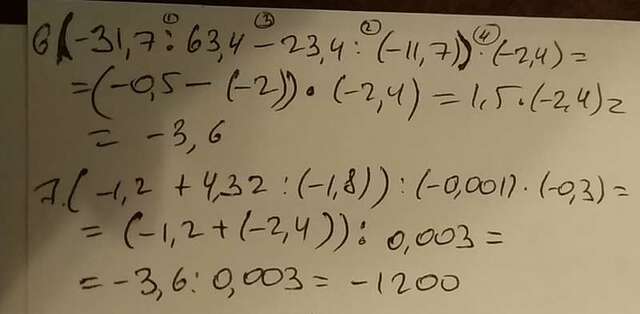 6(-31,7 : 63,4 - 23,4 : (-11,7)) · (-2,4) =
= (-0,5 - (-2)) · (-2,4) = 1,5 · (-2,4) =
= -3,6
7. (-1,2 + 4,32 : (-1,8)) : (-0,001) · (-0,3) =
= (-1,2 + (-2,4)) : 0,003 =
= -3,6 : 0,003 = -1200